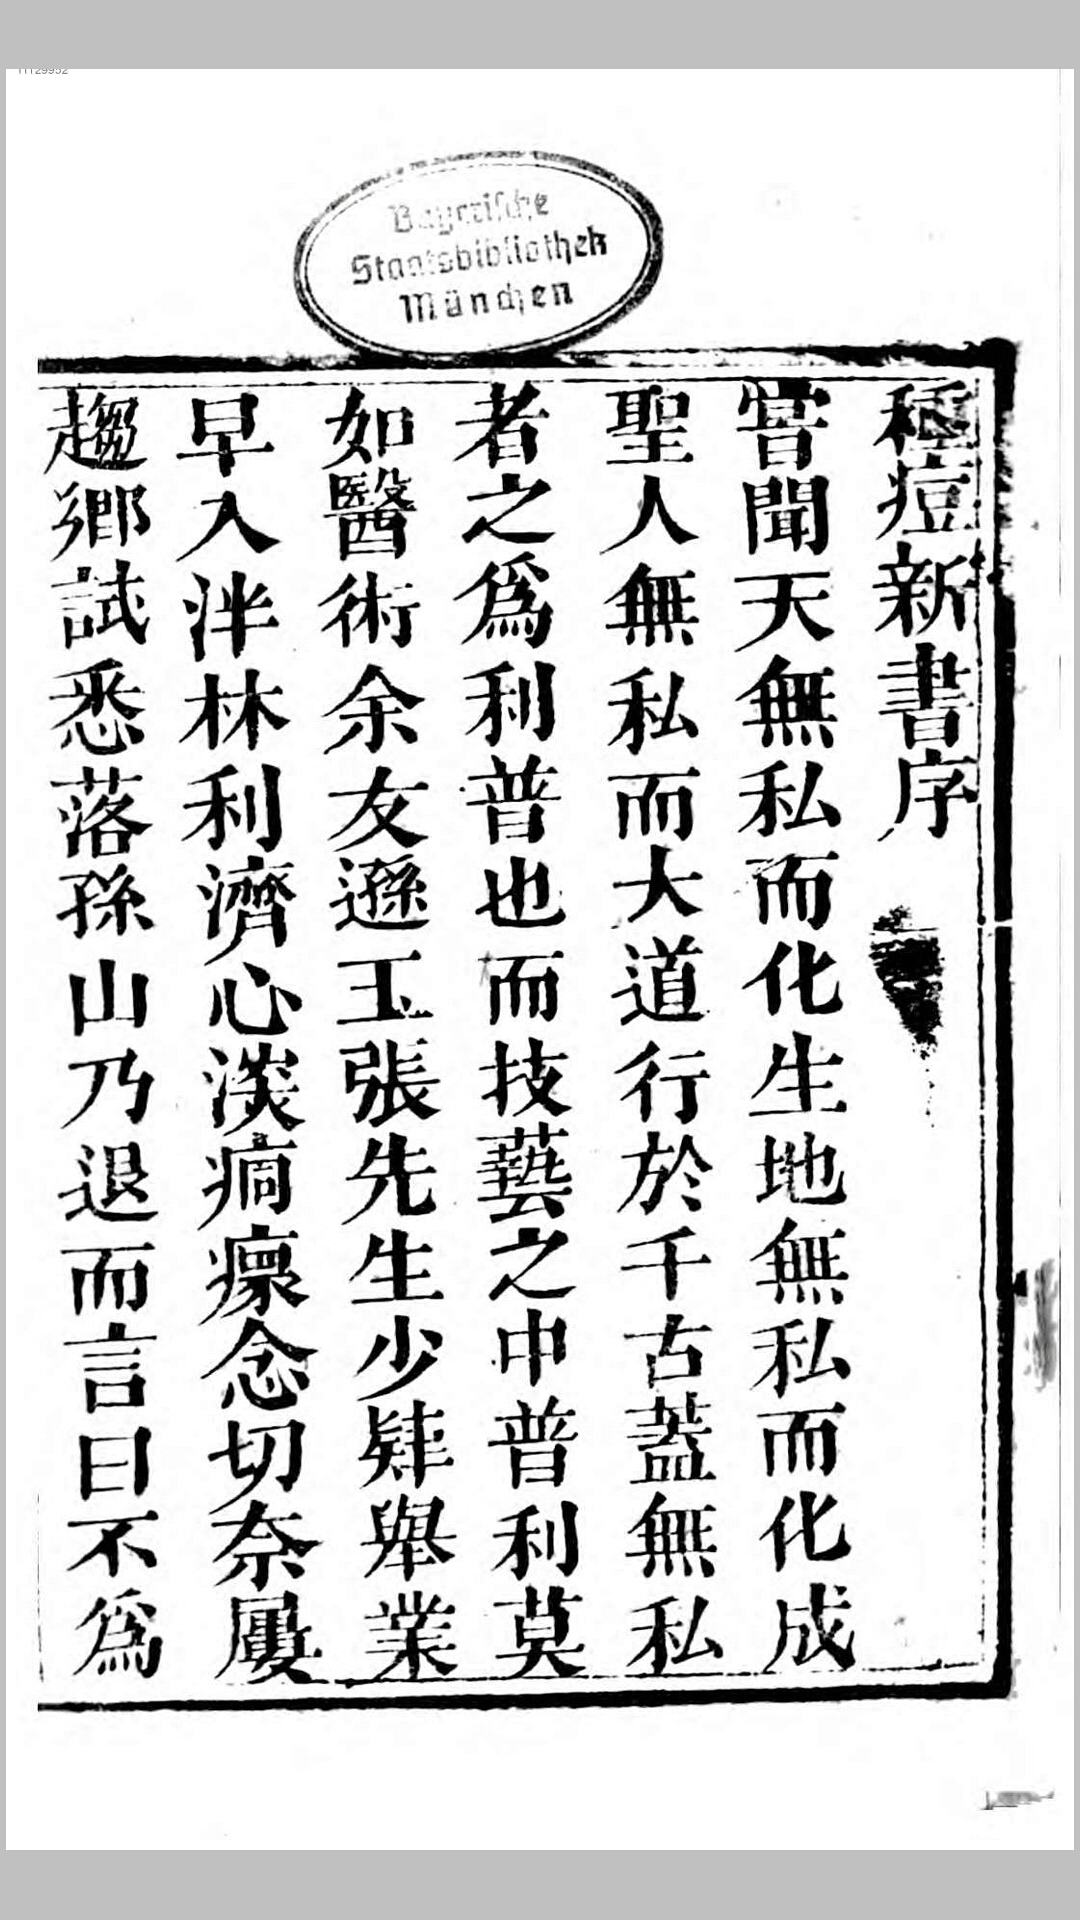 Bayerische
Staatsbibliothek
München
種痘新書序
嘗聞天無私而化生地無私而化成
聖人無私而大道行於千古蓋無私
者之爲利普也而技藝之中普利莫
如醫術余友遜玉張先生少肄舉業
早入泮林利濟心淡痌瘝念切奈屢
趨鄉試悉落孫山乃退而言曰不爲